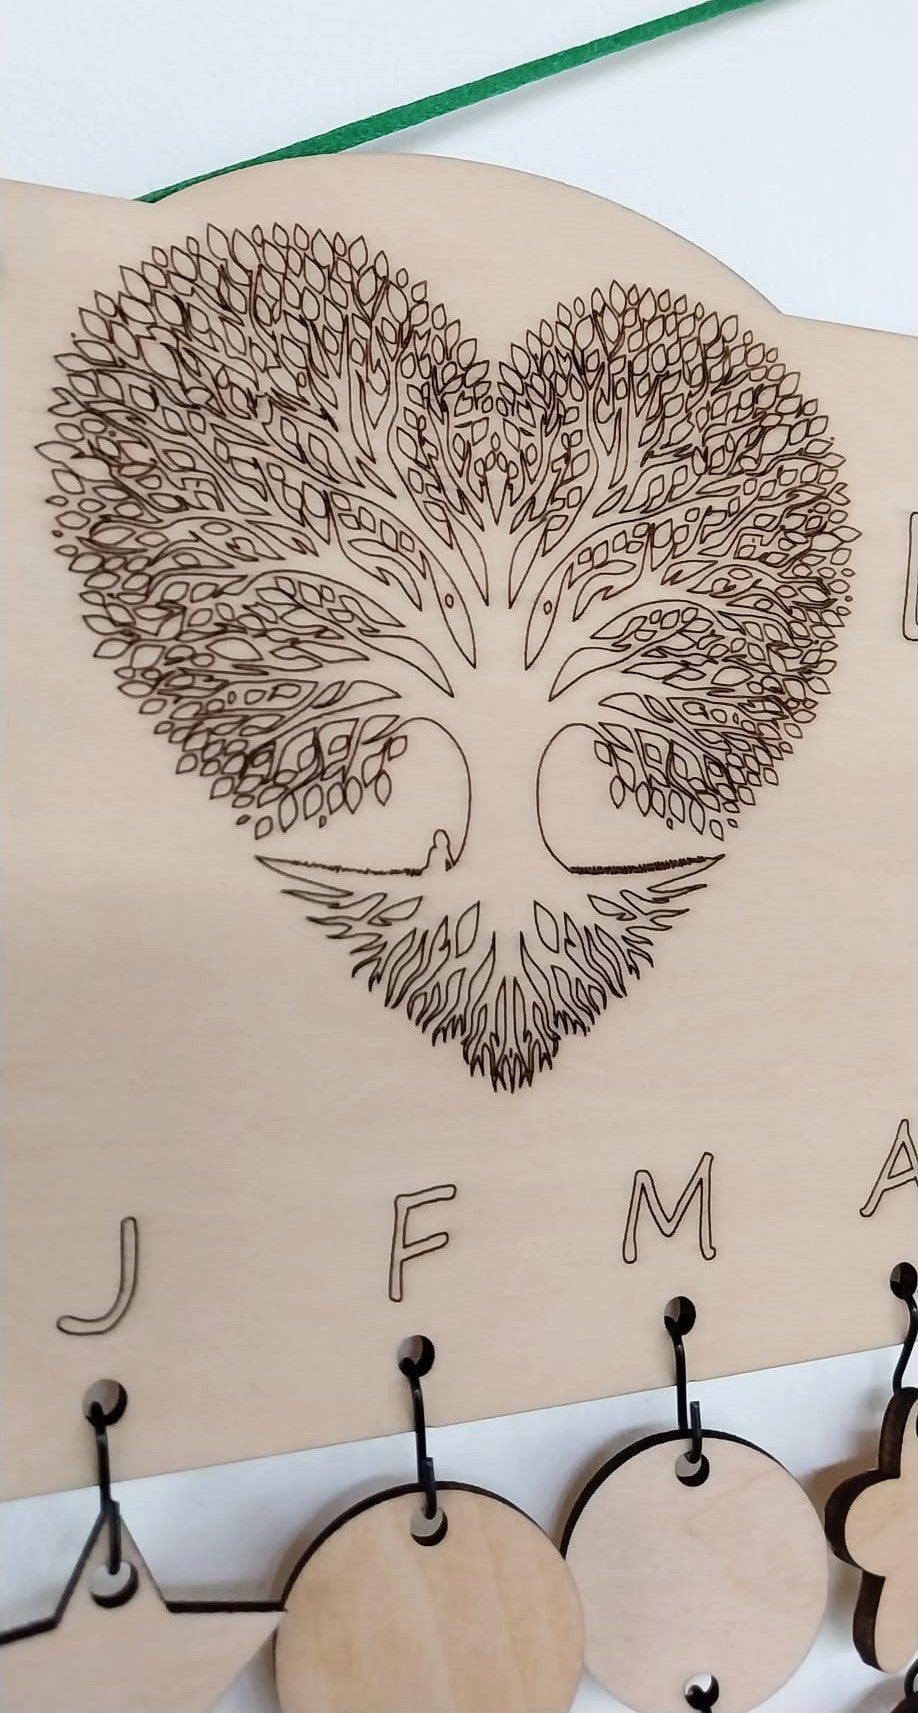 J F M A